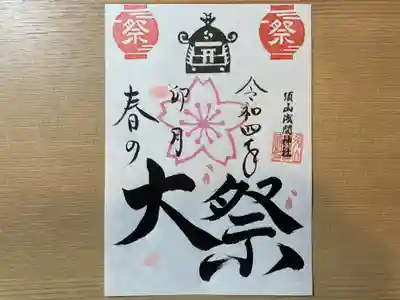 祭
祭
須山浅間神社
令和四年
卯月
春の
大祭